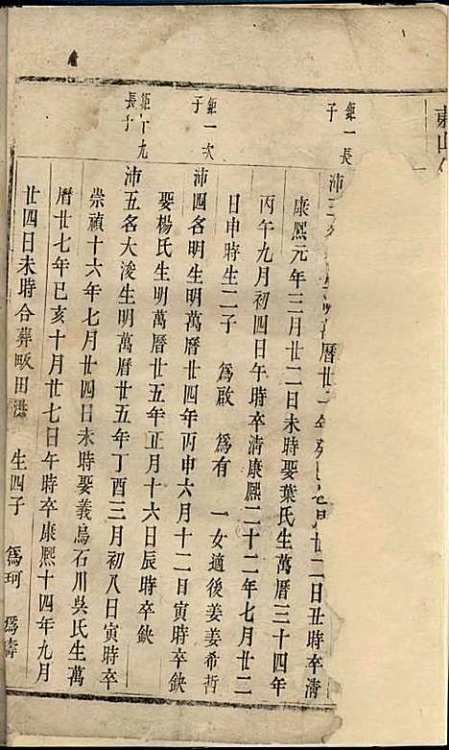 東山
鉅一長子
沛三
曆廿二年
月廿二日丑時卒清
康熙元年三月廿二日未時娶葉氏生萬曆三十四年
丙午九月初四日午時卒清康熙二十二年七月廿二
日申時生二子 爲啟 爲有 一女適後姜姜希哲
鉅一次子
沛四名明生明萬曆廿四年丙申六月十二日寅時卒缺
娶楊氏生明萬曆廿五年正月十六日辰時卒缺
鉅十九長子
沛五名大浚生明萬曆廿五年丁酉三月初八日寅時卒
崇禎十六年七月廿四日未時娶義烏石川吳氏生萬
曆廿七年己亥十月廿七日午時卒康熙十四年九月
廿四日未時合葬畈田 生四子 爲珂 爲壽